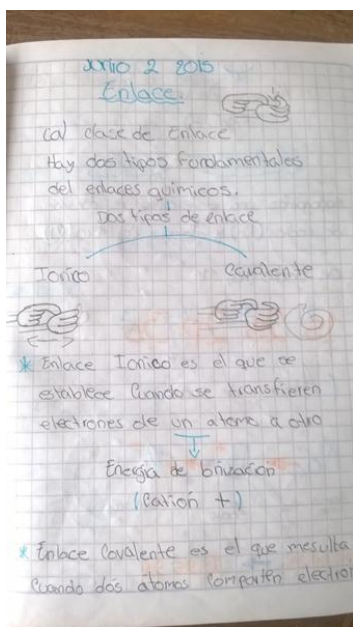 Junio 2 2015
Enlace.
(a) clase de Enlace
Hay dos tipos fondamentales
del enlaces quimicos.
Dos tipos de enlace
Ionico covalente
* Enlace Ionico es el que se
establece Cuando se transfieren
electrones de un atomo a otro
Energia de Ionización
(Cation +)
* Enlace Covalente es el que resulta
Cuando dos atomos Comparten electron